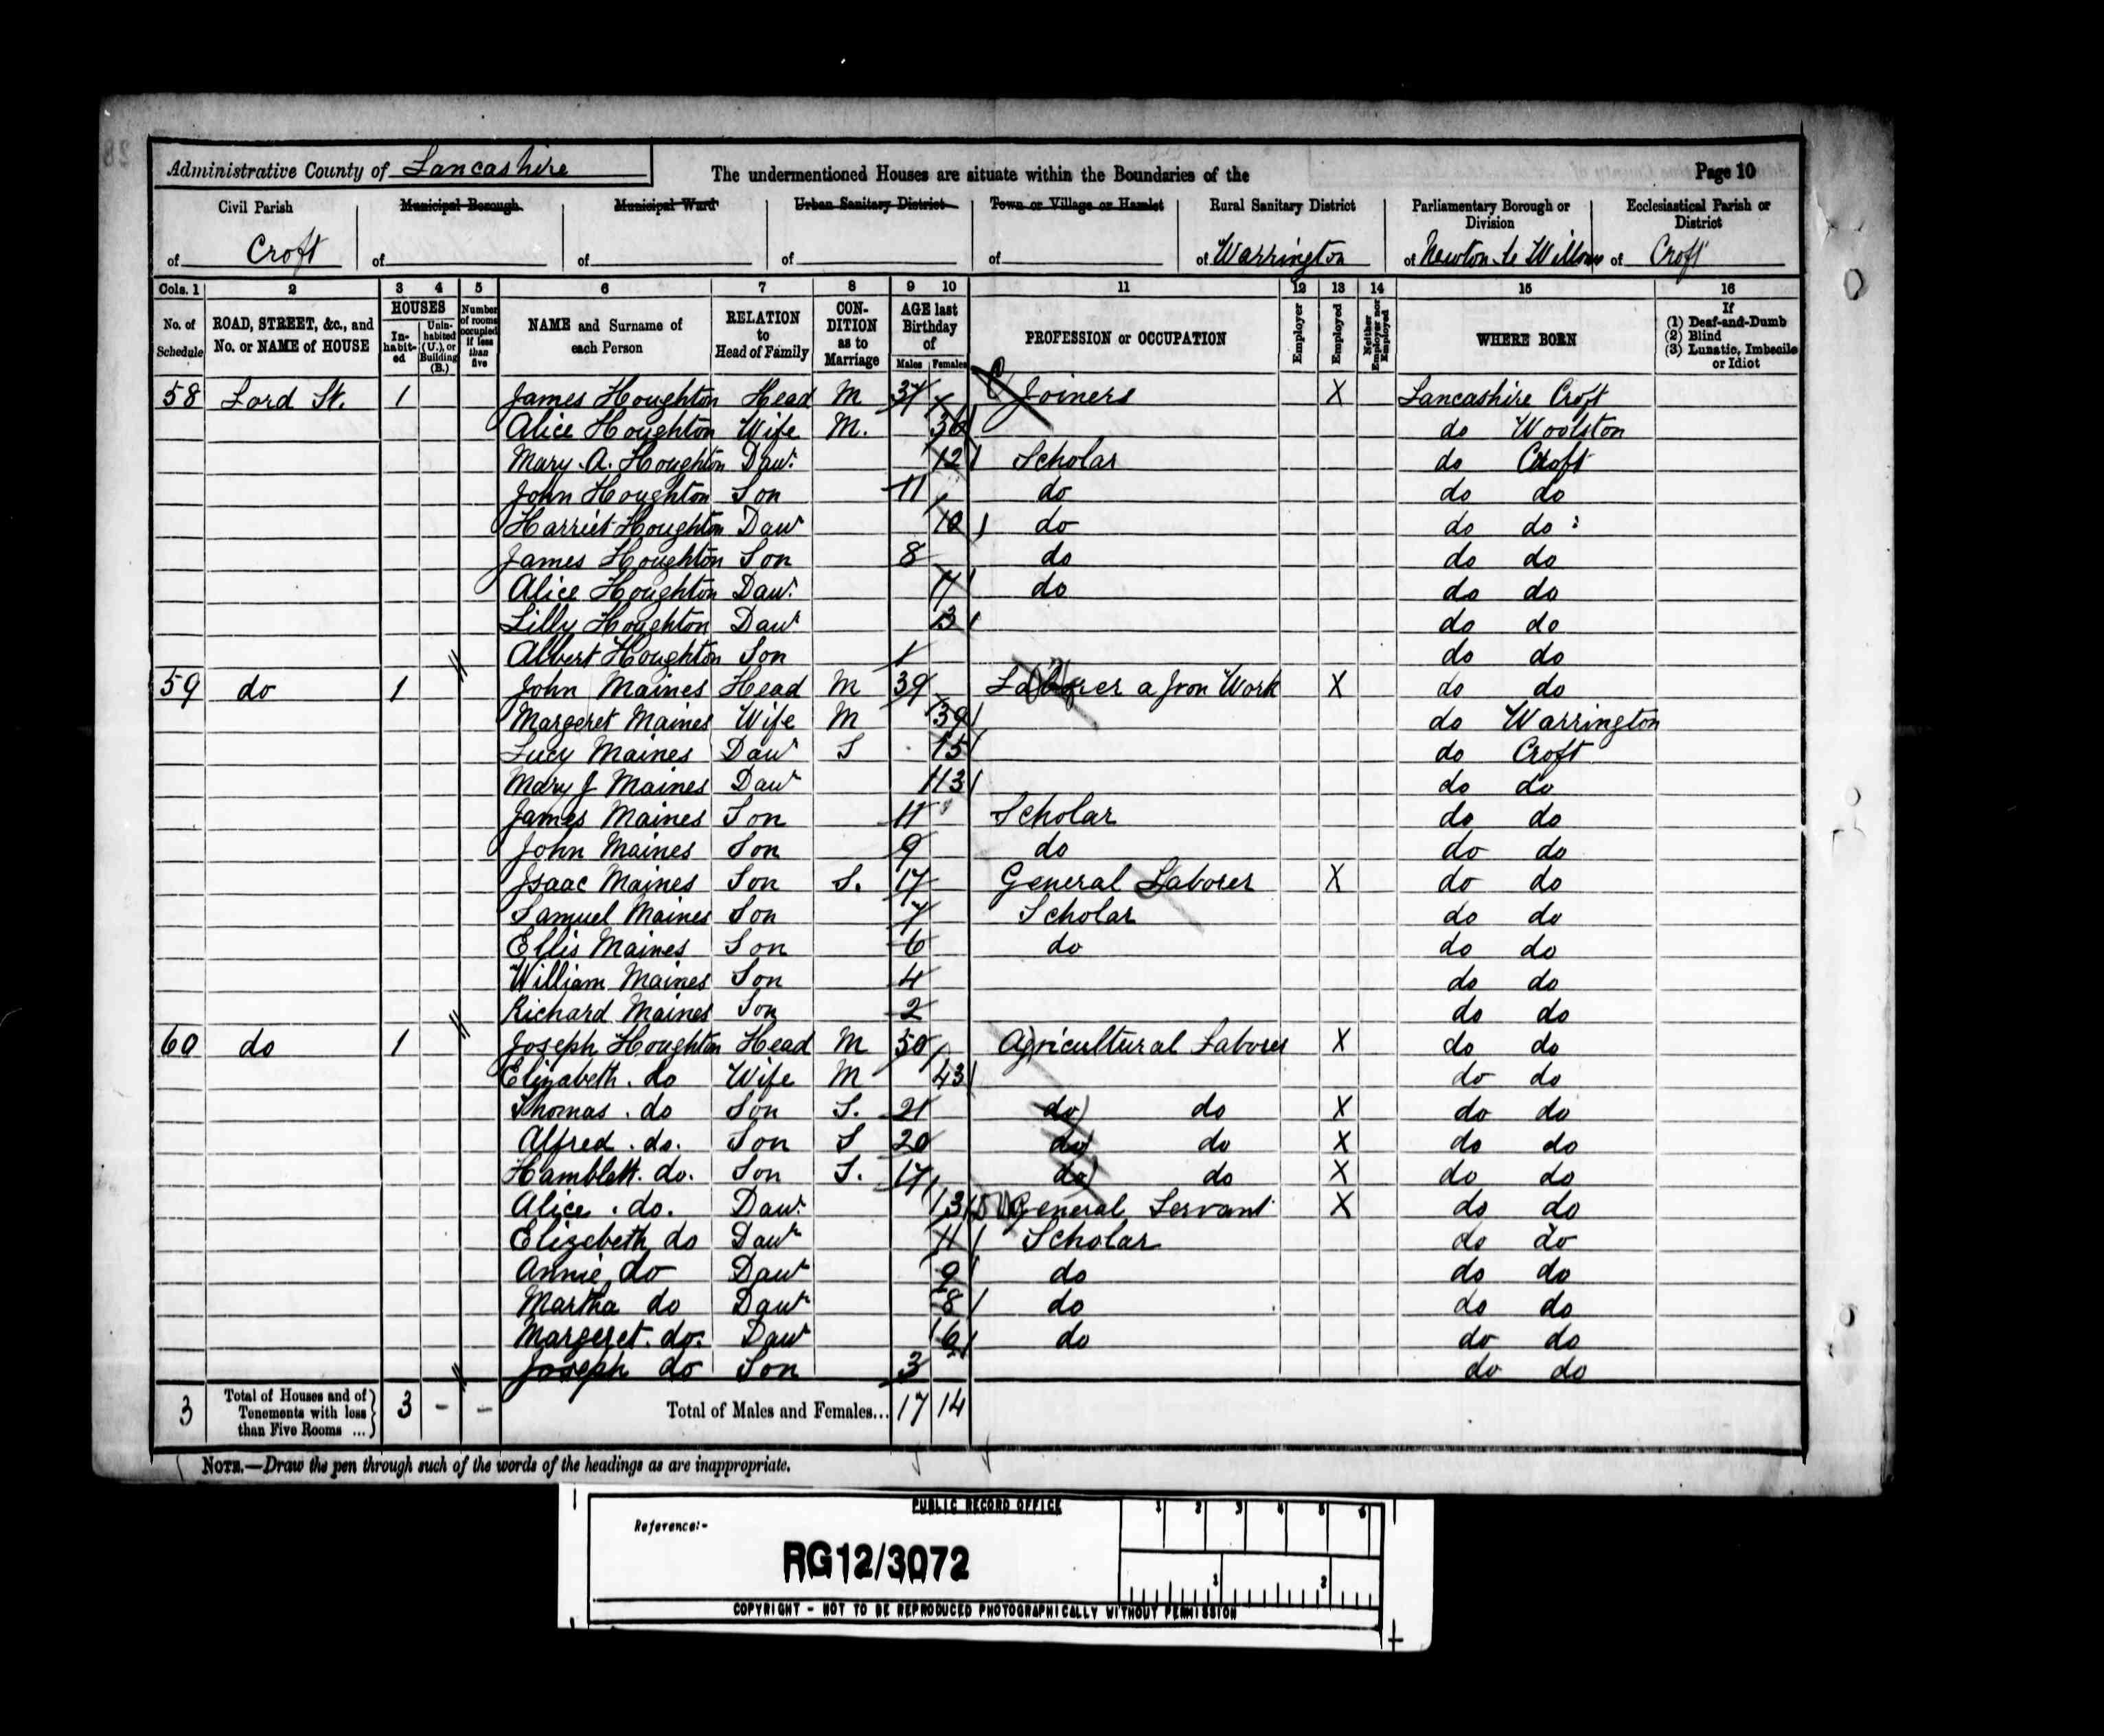 Administrative County of Lancashire The undermentioned Houses are situate within the Boundaries of the Page 10
Civil Parish Municipal Borough Municipal Ward Urban Sanitary District Town or Village or Hamlet Rural Sanitary District Parliamentary Borough or Division Ecclesiastical Parish or District
of Croft of of of of of Warrington of Newton le Willows of Croft
Cols. 1 2 3 4 5 6 7 8 9 10 11 12 13 14 15 16
No. of Schedule ROAD, STREET, &c., and No. or NAME of HOUSE HOUSES In-habit-ed Unin-habited (U.), or Building (B.) Number of rooms occupied if less than five NAME and Surname of each Person RELATION to Head of Family CON-DITION as to Marriage AGE last Birthday of Males Females PROFESSION or OCCUPATION Employer Employed Neither Employer nor Employed WHERE BORN If (1) Deaf-and-Dumb (2) Blind (3) Lunatic, Imbecile or Idiot
58 Lord St. 1 James Houghton Head M 37 Joiners X Lancashire Croft
Alice Houghton Wife M. 36 do Woolston
Mary. A. Houghton Daur. 12 Scholar do Croft
John Houghton Son 11 do do do
Harriet Houghton Daur 10 do do do
James Houghton Son 8 do do do
Alice Houghton Daur. 7 do do do
Lilly Houghton Daur 3 do do
Albert Houghton Son 1 do do
59 do 1 John Maines Head M 39 Laborer a Iron Work X do do
Margeret Maines Wife M 39 do Warrington
Lucy Maines Daur S 15 do Croft
Mary J Maines Daur 13 do do
James Maines Son 11 Scholar do do
John Maines Son 9 do do do
Isaac Maines Son S. 17 General Laborer X do do
Samuel Maines Son 7 Scholar do do
Ellis Maines Son 6 do do do
William Maines Son 4 do do
Richard Maines Son 2 do do
60 do 1 Joseph Houghton Head M 50 Agricultural Laborer X do do
Elizabeth. do Wife M 43 do do
Thomas. do Son S. 21 do do X do do
Alfred. do. Son S 20 do do X do do
Hamblett. do. Son S. 17 do do X do do
Alice. do. Daur. 13 General Servant X do do
Elizebeth do Daur 11 Scholar do do
Annie do Daur 9 do do do
Martha do Daur 8 do do do
Margeret. do. Daur 6 do do do
Joseph do Son 3 do do
3 Total of Houses and of Tenements with less than Five Rooms ... 3 - - Total of Males and Females... 17 14
NOTE.—Draw the pen through such of the words of the headings as are inappropriate.
PUBLIC RECORD OFFICE 1 2 3 4 5 6
Reference:-
RG12/3072
1 2
COPYRIGHT - NOT TO BE REPRODUCED PHOTOGRAPHICALLY WITHOUT PERMISSION